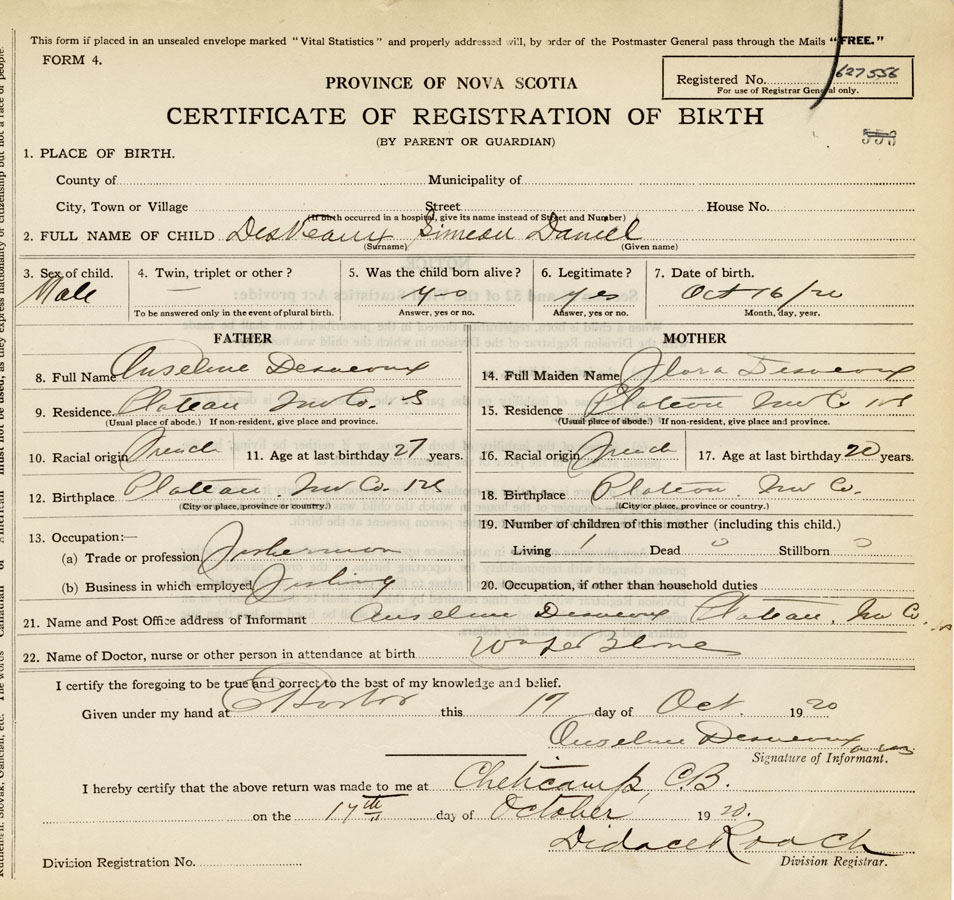 This form if placed in an unsealed envelope marked "Vital Statistics" and properly addressed will, by order of the Postmaster General pass through the Mails "FREE."
FORM 4.
Registered No. 627556
For use of Registrar General only.
PROVINCE OF NOVA SCOTIA
CERTIFICATE OF REGISTRATION OF BIRTH
(BY PARENT OR GUARDIAN)
553
1. PLACE OF BIRTH.
County of Municipality of
City, Town or Village Street House No.
(If birth occurred in a hospital, give its name instead of Street and Number)
2. FULL NAME OF CHILD DesVeaux Simeau Daniel
(Surname) (Given name)
3. Sex of child. 4. Twin, triplet or other? 5. Was the child born alive? 6. Legitimate? 7. Date of birth.
Male — yes yes Oct 16/20
To be answered only in the event of plural birth. Answer, yes or no. Answer, yes or no. Month, day, year.
FATHER
8. Full Name Anseline Desveaux
9. Residence Plateau Inv Co. NS
(Usual place of abode.) If non-resident, give place and province.
10. Racial origin French 11. Age at last birthday 27 years.
12. Birthplace Plateau. Inv Co. NS
(City or place, province or country.)
13. Occupation:—
(a) Trade or profession Fisherman
(b) Business in which employed Fishing
MOTHER
14. Full Maiden Name Flora Desveaux
15. Residence Plateau Inv Co NS
(Usual place of abode.) If non-resident, give place and province.
16. Racial origin French 17. Age at last birthday 20 years.
18. Birthplace Plateau. Inv Co.
(City or place, province or country.)
19. Number of children of this mother (including this child.)
Living 1 Dead 0 Stillborn 0
20. Occupation, if other than household duties
21. Name and Post Office address of Informant Anseline Desveaux Plateau. Inv Co. NS
22. Name of Doctor, nurse or other person in attendance at birth
I certify the foregoing to be true and correct to the best of my knowledge and belief.
Given under my hand at this 17 day of Oct. 1920
Anseline Desveaux
Signature of Informant.
I hereby certify that the above return was made to me at Cheticamp, C.B.
on the 17th day of October 1920.
Didace Roach
Division Registrar.
Division Registration No.